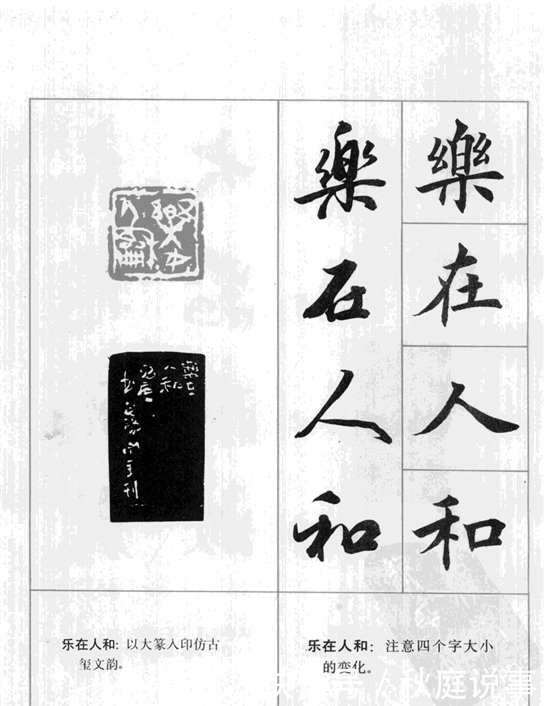 樂在人和
樂在人和
乐在人和: 注意四个字大小
的变化。
乐在人和: 以大篆入印仿古
玺文韵。
秋庭说事